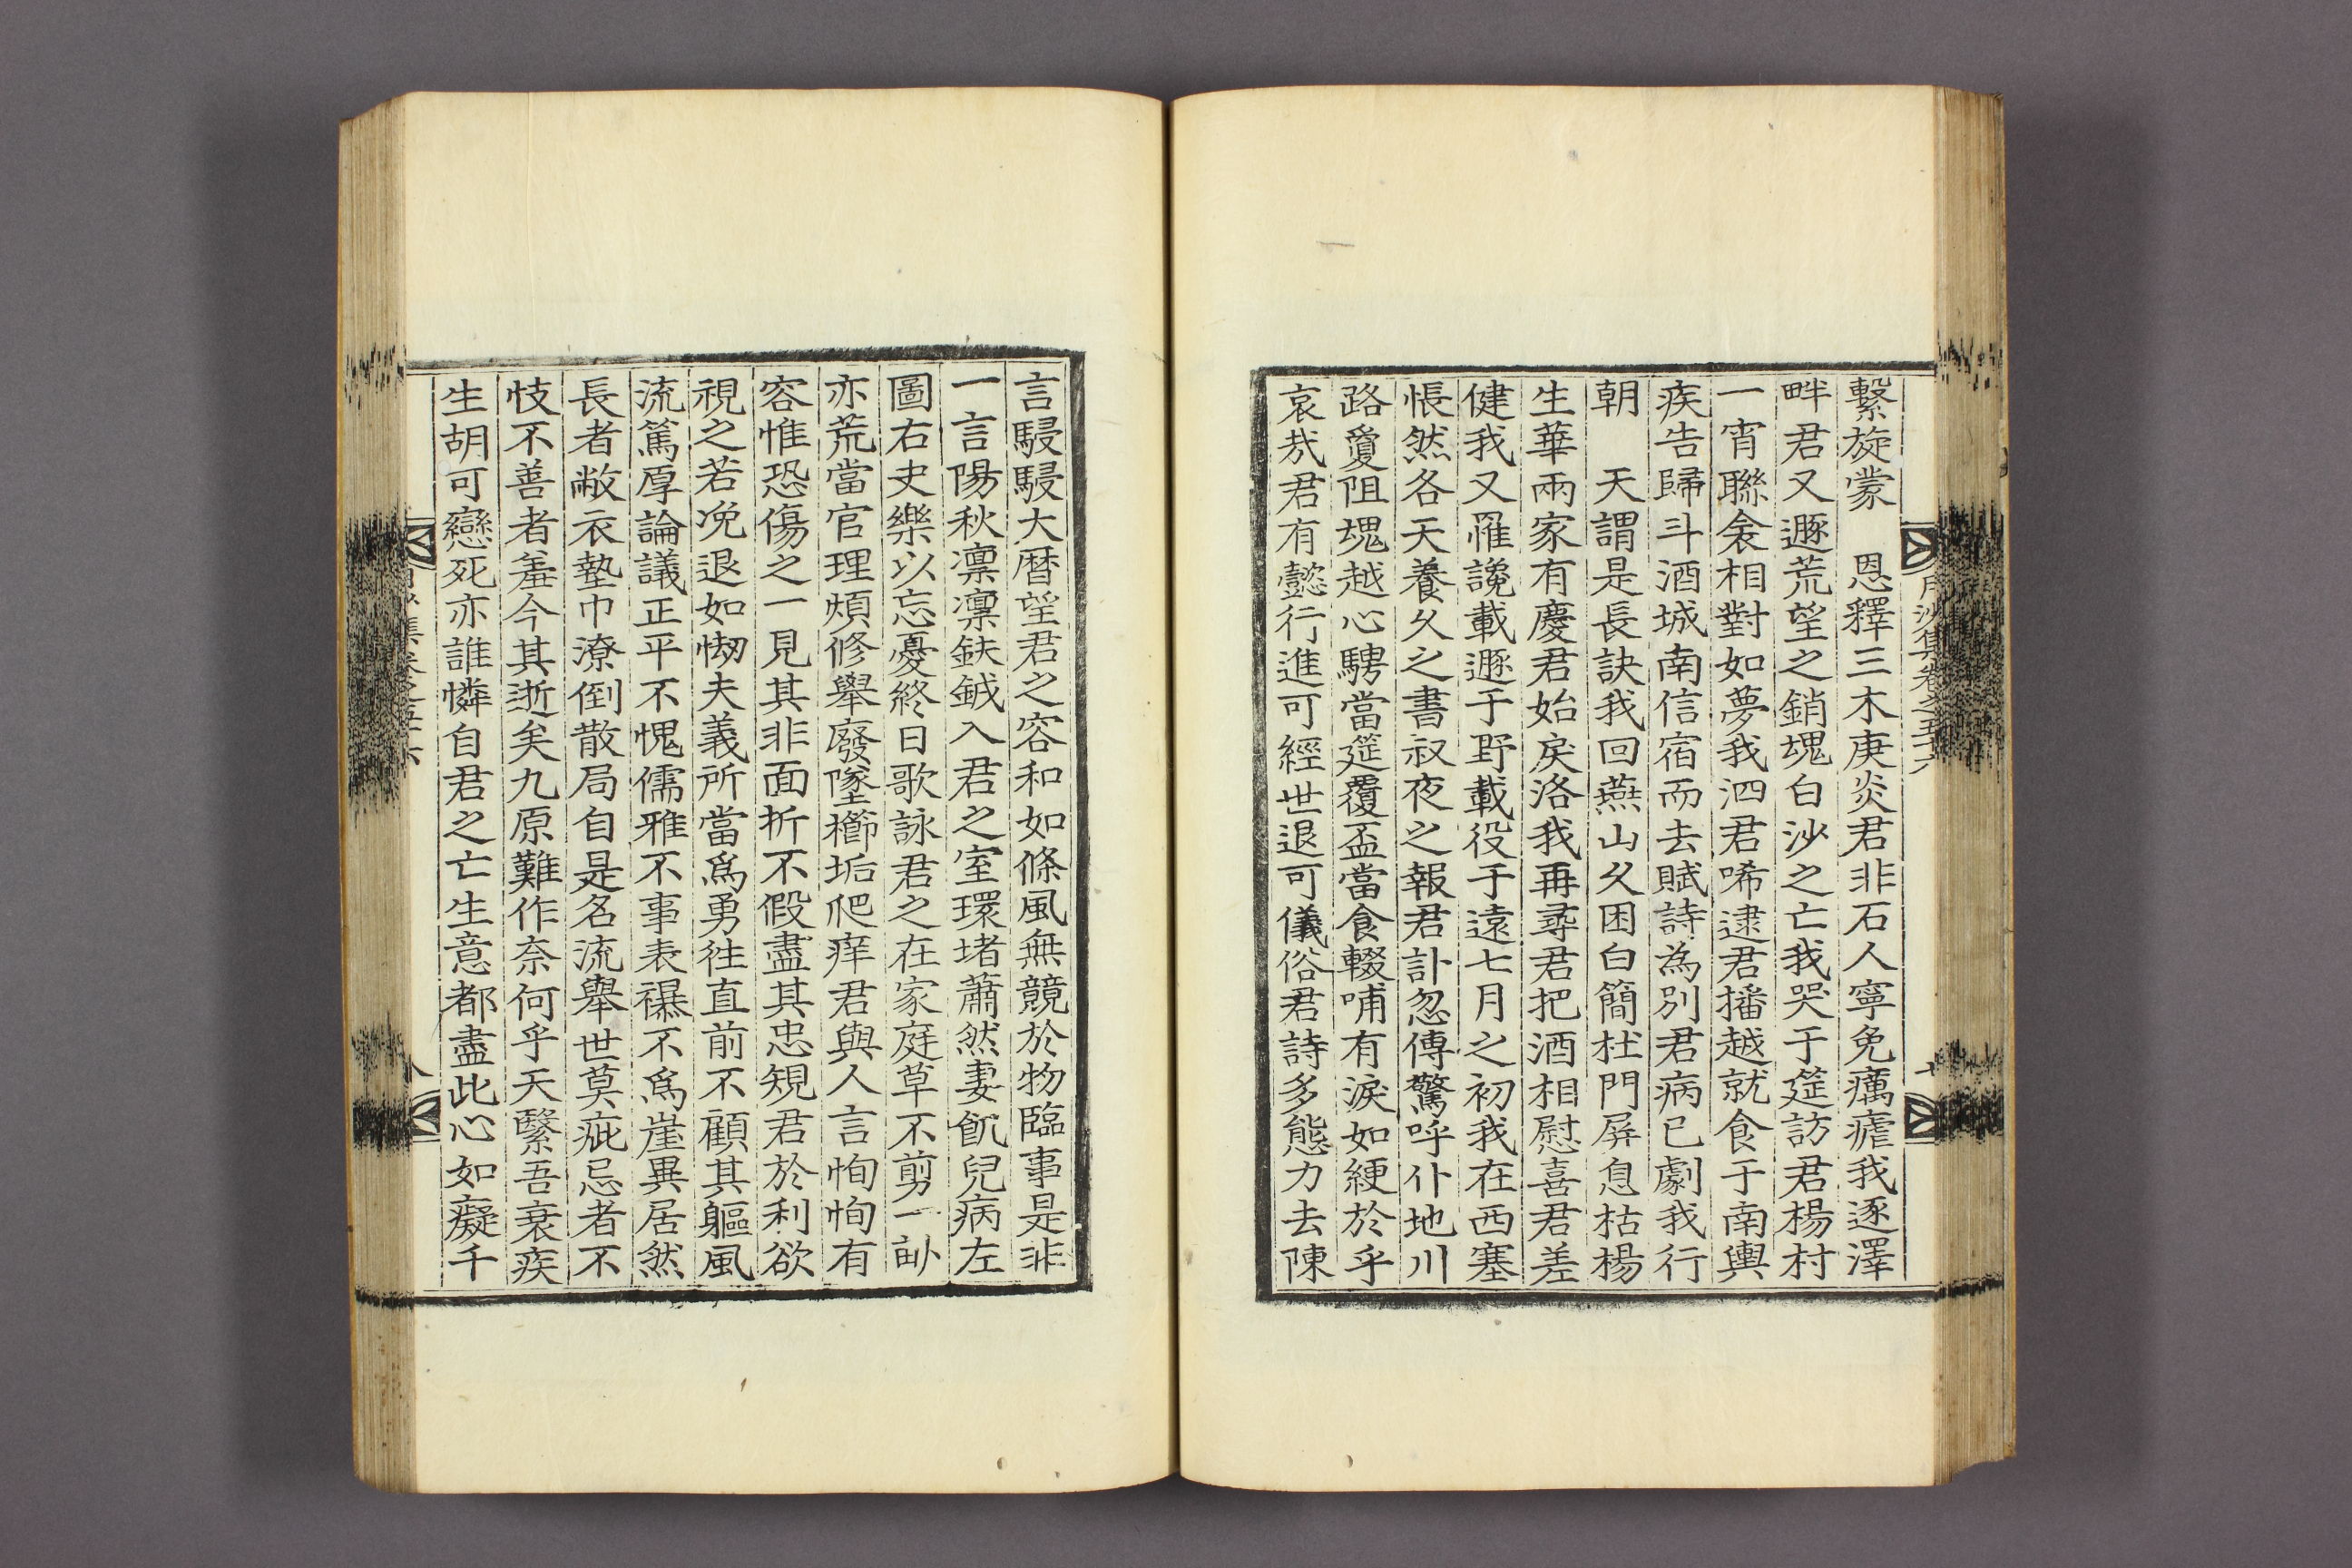 月沙集卷之五十六
繫旋蒙　恩釋三木庚炎君非石人寧免癘瘧我逐澤
畔君又遯荒望之銷塊白沙之亡我哭于筵訪君楊村
一宵聯衾相對如夢我泗君唏逮君播越就食于南輿
疾告歸斗酒城南信宿而去賦詩為別君病已劇我行
朝　天謂是長訣我回燕山久困白簡杜門屏息枯楊
生華兩家有慶君始戾洛我再尋君把酒相慰喜君差
健我又罹讒載遯于野載役于遠七月之初我在西塞
悵然各天養久之書叔夜之報君訃忽傳驚呼仆地川
路敻阻塊越心騁當筵覆盃當食輟哺有淚如綆於乎
哀哉君有懿行進可經世退可儀俗君詩多態力去陳
言駸駸大曆望君之容和如條風無競於物臨事是非
一言陽秋凛凛鈇鉞入君之室環堵蕭然妻飢兒病左
圖右史樂以忘憂終日歌詠君之在家庭草不剪一畝
亦荒當官理煩修舉廢墜櫛垢爬痒君與人言恂恂有
容惟恐傷之一見其非面折不假盡其忠規君於利欲
視之若凂退如㤼夫義所當爲勇徃直前不顧其軀風
流篤厚論議正平不愧儒雅不事表襮不爲崖異居然
長者敝衣墊巾潦倒散局自是名流舉世莫疵忌者不
忮不善者羞今其逝矣九原難作奈何乎天繄吾衰疾
生胡可戀死亦誰憐自君之亡生意都盡此心如癡千
集卷之五十六
八